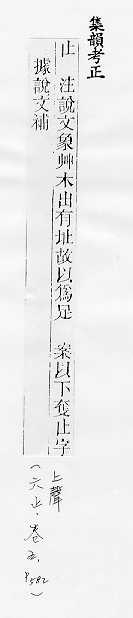 集韻考正
止　注說文象艸木出有址故以爲足　案以下奪止字
據說文補
上聲
(六止·卷五,P582)